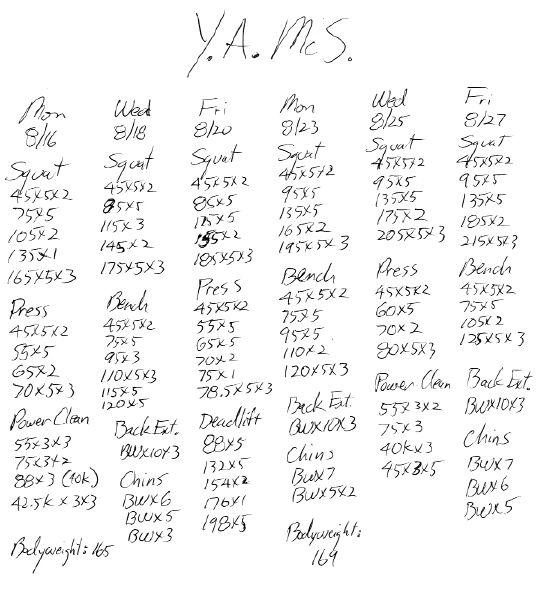 Y.A. McS.
Mon
8/16
Squat
45x5x2
75x5
105x2
135x1
165x5x3
Press
45x5x2
55x5
65x2
70x5x3
Power Clean
55x3x3
75x3x2
88x3 (40k)
42.5k x3x3
Bodyweight: 165
Wed
8/18
Squat
45x5x2
85x5
115x3
145x2
175x5x3
Bench
45x5x2
75x5
95x3
110x5x3
115x5
120x5
Back Ext.
BWx10x3
Chins
BWx6
BWx5
BWx3
Fri
8/20
Squat
45x5x2
85x5
125x5
155x2
185x5x3
Press
45x5x2
55x5
65x5
70x2
75x1
78.5x5x3
Deadlift
88x5
132x5
154x2
176x1
198x5
Mon
8/23
Squat
45x5x2
95x5
135x5
165x2
195x5x3
Bench
45x5x2
75x5
95x5
110x2
120x5x3
Back Ext.
BWx10x3
Chins
BWx7
BWx5x2
Bodyweight:
169
Wed
8/25
Squat
45x5x2
95x5
135x5
175x2
205x5x3
Press
45x5x2
60x5
70x2
80x5x3
Power Clean
55x3x2
75x3
40kx3
45x3x5
Fri
8/27
Squat
45x5x2
95x5
135x5
185x2
215x5x3
Bench
45x5x2
75x5
105x2
125x5x3
Back Ext.
BWx10x3
Chins
BWx7
BWx6
BWx5